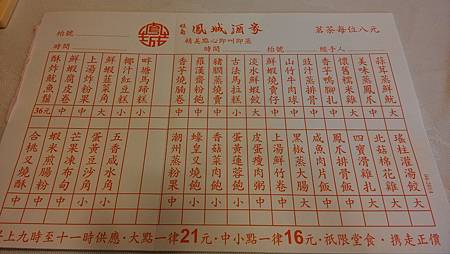 枱號
旺角 鳳城酒家
茗茶每位八元
精美點心即叫即蒸
時間
時間 枱號 經手人
蒜茸蒸鮮魷 大
美味蒸鳳爪 中
懷舊糯米雞 大
豉汁蒸排骨 中
山竹牛肉球 中
鮮蝦燒賣仔 中
淡水鮮蝦餃 大
古法馬拉糕 小
香芋燒腩卷 中
泮塘馬蹄糕 小
椰汁紅豆糕 小
鮮蝦韮菜角 大
上湯炸粉果 中
鮮蝦腐皮卷 中
酥炸魷魚鬚 36元
瑤柱灌湯餃 大
北菇棉花雞 大
四寶滑雞扎 大
鳳爪排骨飯
咸魚肉片飯
黑椒牛仔骨 大
上湯鮮竹卷 中
皮蛋瘦肉粥 小
蛋黃蓮蓉飽 中
香菇菜肉飽 小
蠔皇叉燒飽 中
潮州蒸粉果 中
五香咸水角 小
蛋黃豆沙角 小
芒果凍布甸 中
蝦米煎腸粉 中
合桃叉燒酥 中
早上九時至十一時供應·大點一律21元·中小點一律16元·祇限堂食·携走正價